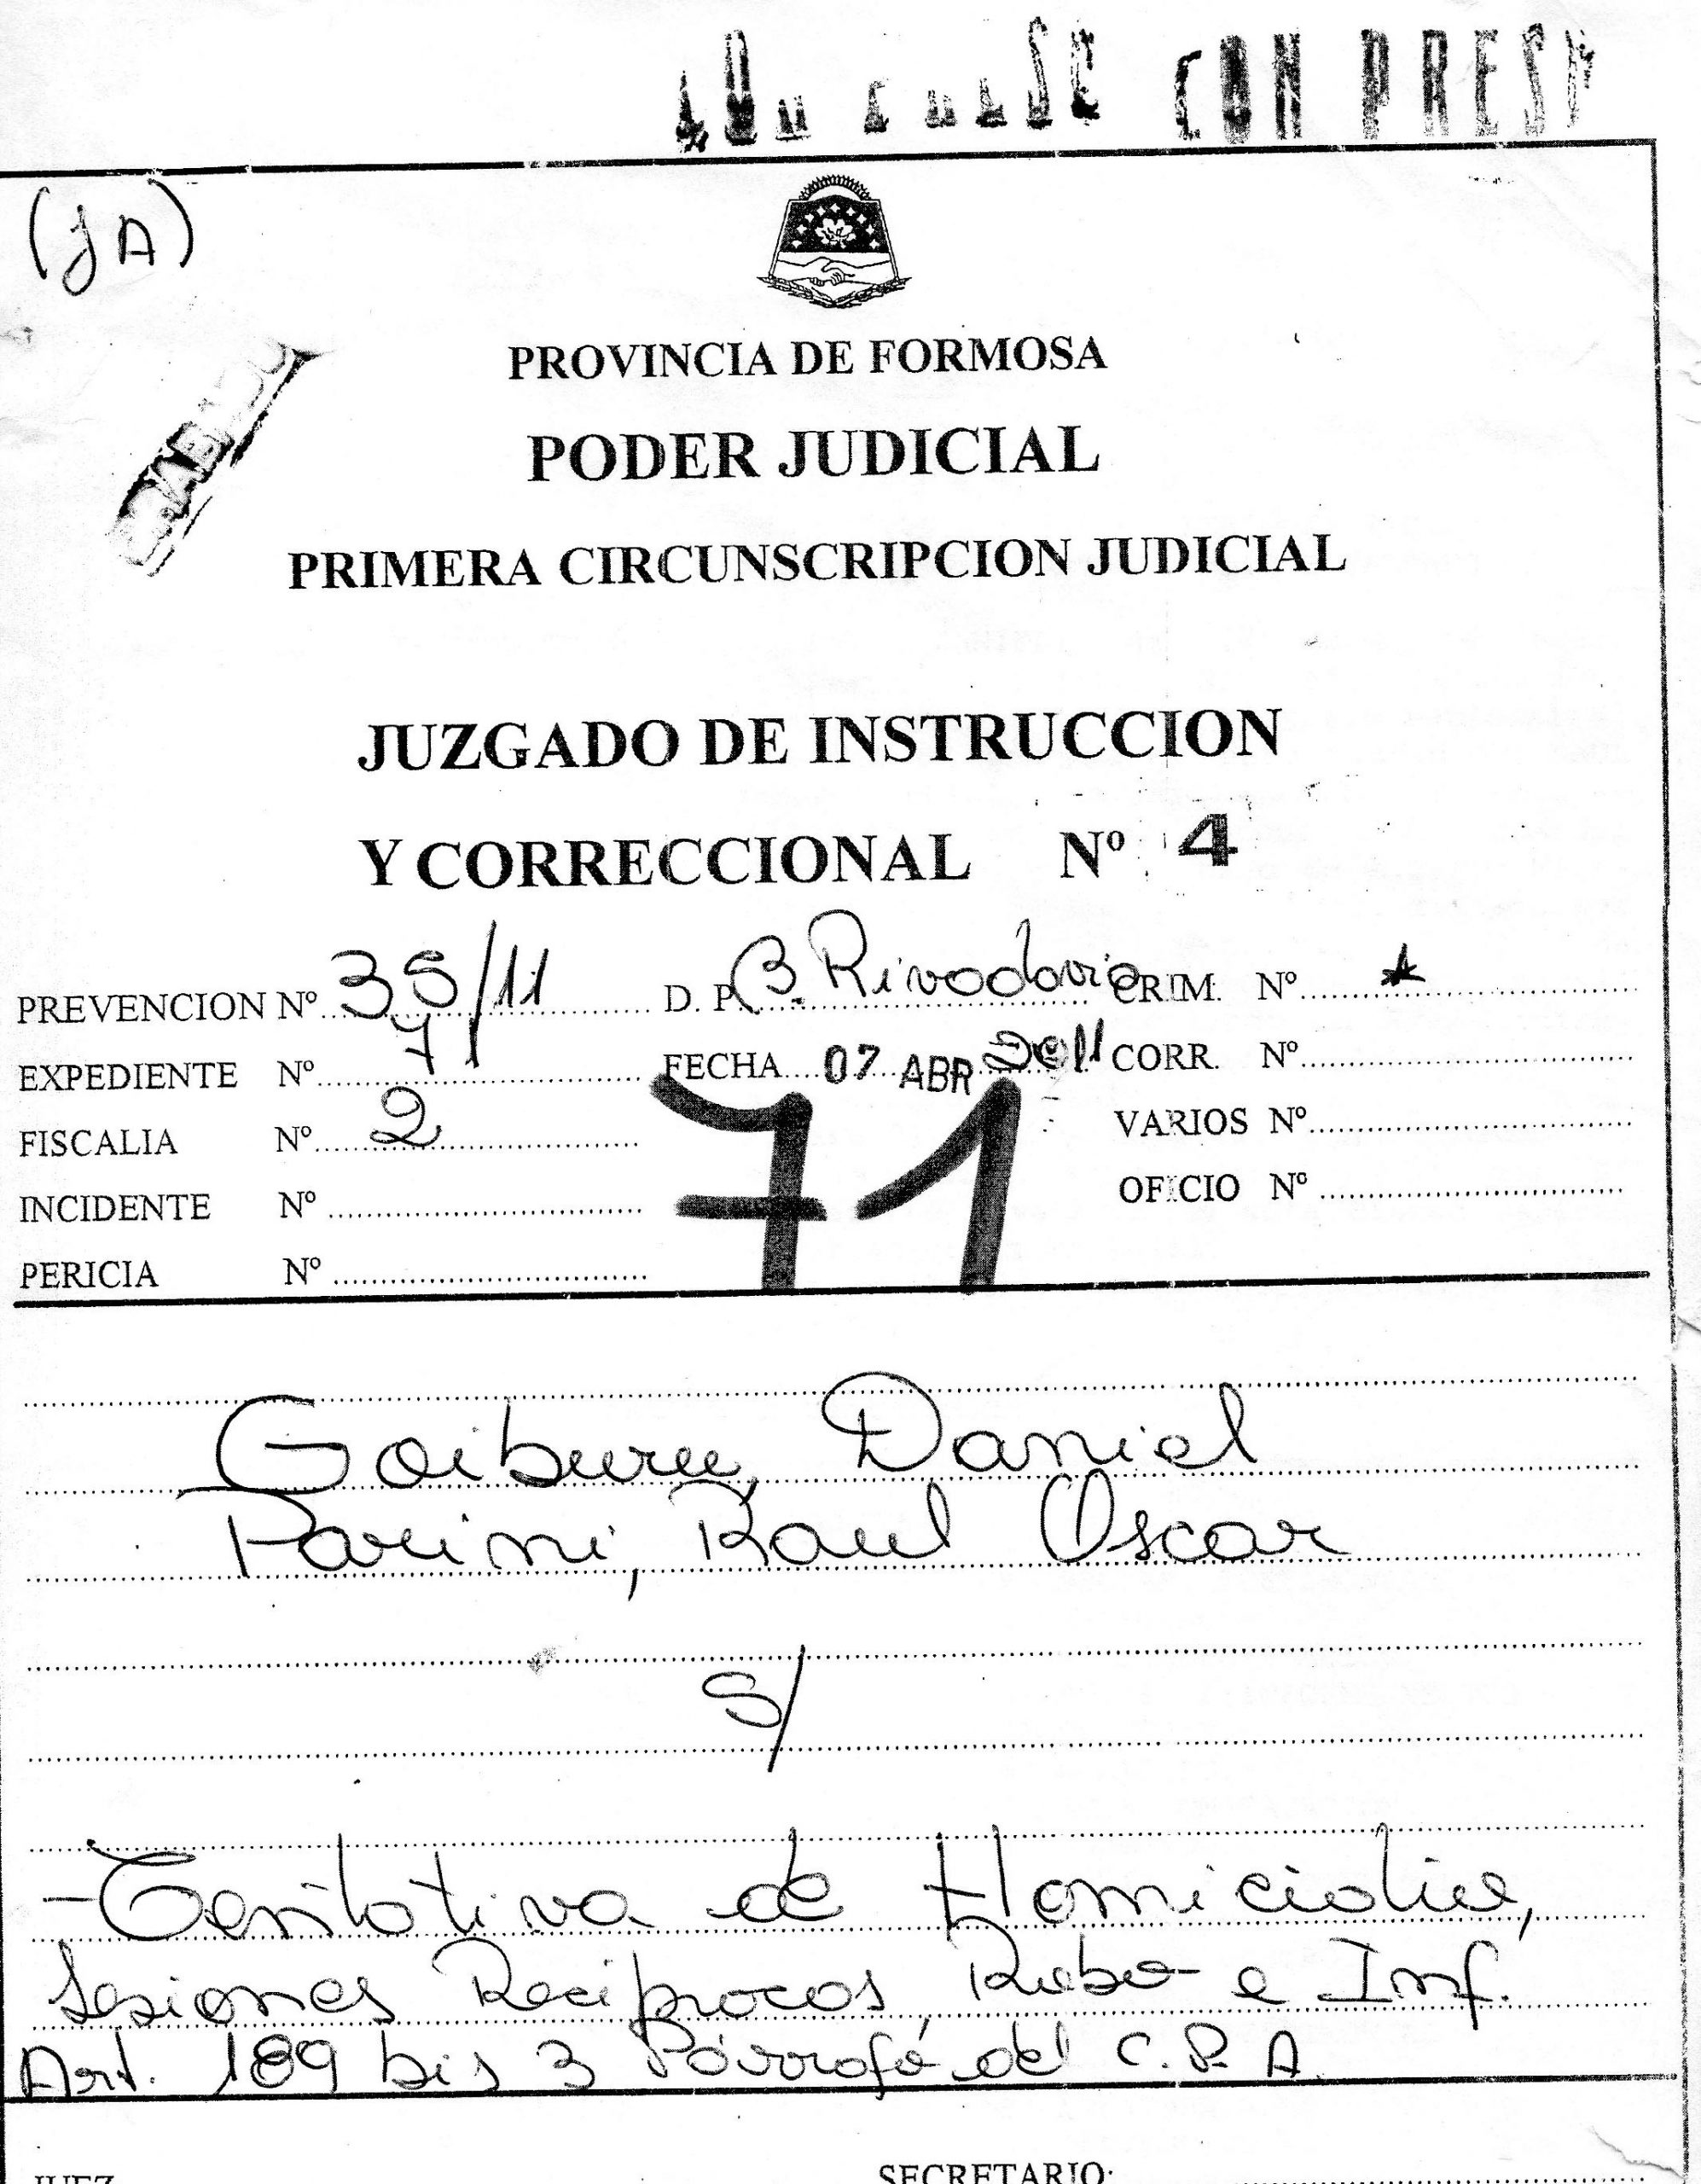 CON PRES
(JA)
PROVINCIA DE FORMOSA
PODER JUDICIAL
PRIMERA CIRCUNSCRIPCION JUDICIAL
JUZGADO DE INSTRUCCION
Y CORRECCIONAL Nº 4
PREVENCION Nº 35/11 D. P. B. Rivadavia CRIM. Nº
EXPEDIENTE Nº 71 FECHA 07 ABR 2011 CORR. Nº
FISCALIA Nº 2 71 VARIOS Nº
INCIDENTE Nº OFICIO Nº
PERICIA Nº
Goiburu, Daniel
Parini, Raul Oscar
S/
-Tentativa de Homicidio,
Lesiones Reciprocas, Robo e Inf.
Art. 189 bis 3 Párrafo del C.P.A.
JUEZ SECRETARIO: